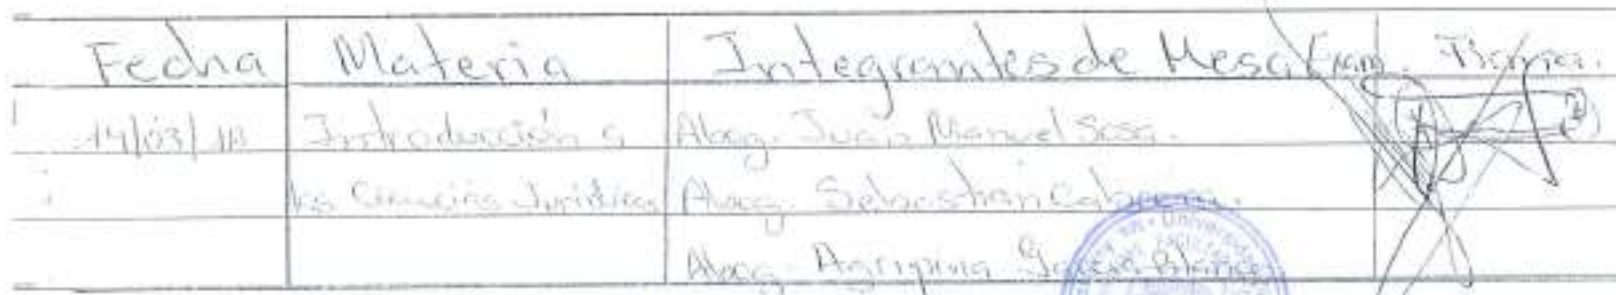 Fecha Materia Integrantes de Mesa Exam. Firma.
14/03/18 Introducción a Abog. Juan Manuel Sosa.
las Ciencias Jurídicas Abog. Sebastián Cabrera.
Abog. Agripina García Blanco
Universidad